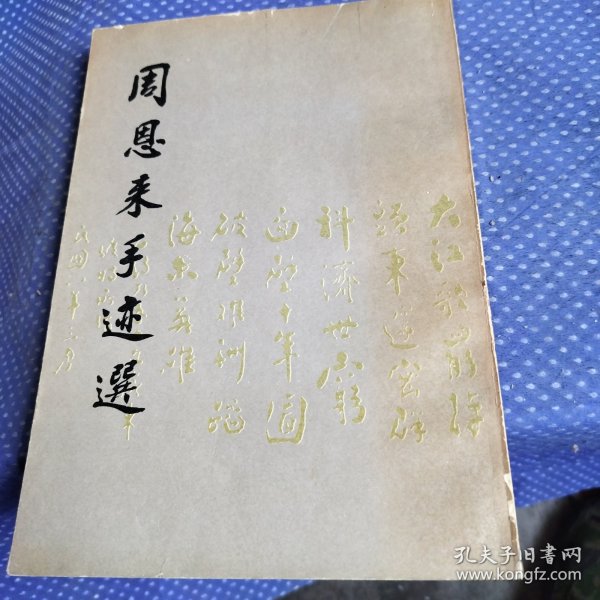 周恩来手迹選
大江歌罷掉
頭東邃密群
科濟世窮
面壁十年圖
破壁難酬蹈
海亦英雄
孔夫子旧书网
www.kongfz.com